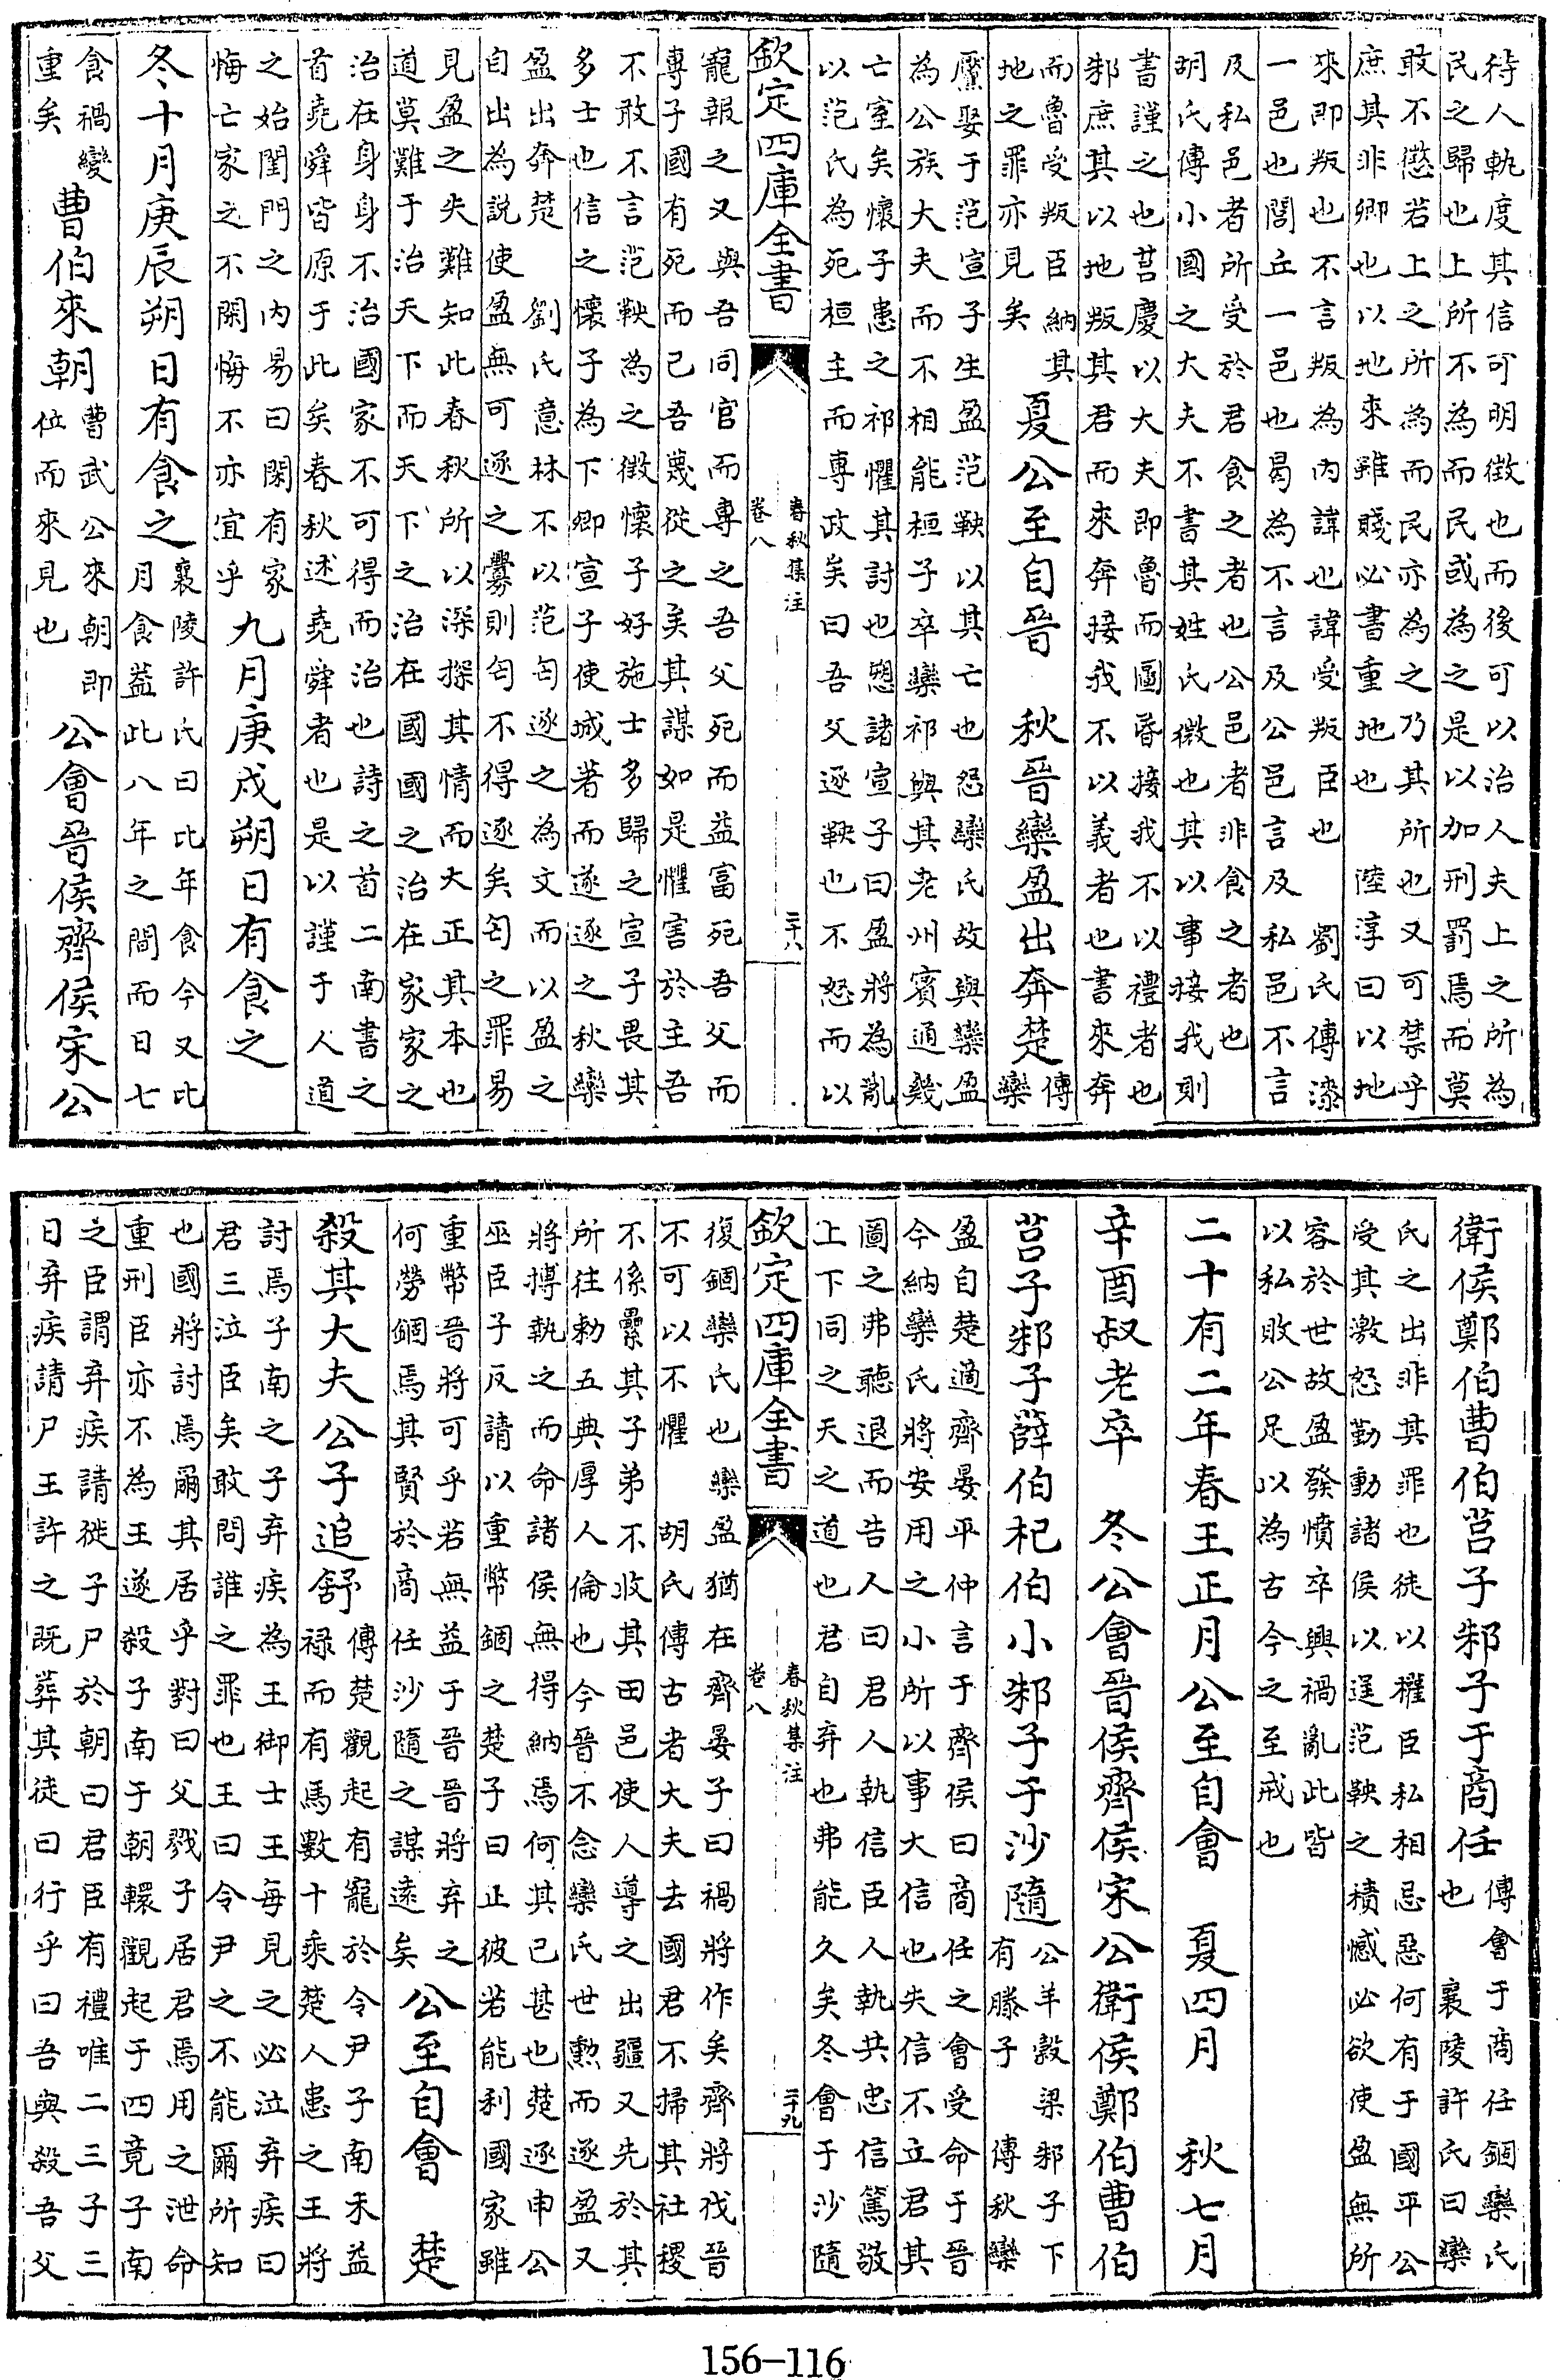 待人軌度其信可明徵也而後可以治人夫上之所為
民之歸也上所不為而民或為之是以加刑罰焉而莫
敢不懲若上之所為而民亦為之乃其所也又可禁乎
庶其非卿也以地來雖賤必書重地也　陸淳曰以地
來即叛也不言叛為內諱也諱受叛臣也　劉氏傳漆
一邑也閭丘一邑也曷為不言及公邑言及私邑不言
及私邑者所受於君食之者也公邑者非食之者也
胡氏傳小國之大夫不書其姓氏微也其以事接我則
書謹之也莒慶以大夫即魯而圖昏接我不以禮者也
邾庶其以地叛其君而來奔接我不以義者也書來奔
而魯受叛臣納其
地之罪亦見矣
夏公至自晉　秋晉欒盈出奔楚
傳
欒
黶娶于范宣子生盈范鞅以其亡也怨欒氏故與欒盈
為公族大夫而不相能桓子卒欒祁與其老州賓通幾
亡室矣懷子患之祁懼其討也愬諸宣子曰盈將為亂
以范氏為死桓主而專政矣曰吾父逐鞅也不怒而以
欽定四庫全書
春秋集注
卷八
二十八
寵報之又與吾同官而專之吾父死而益富死吾父而
專子國有死而已吾蔑從之矣其謀如是懼害於主吾
不敢不言范鞅為之徵懷子好施士多歸之宣子畏其
多士也信之懷子為下卿宣子使城著而遂逐之秋欒
盈出奔楚　劉氏意林不以范匄逐之為文而以盈之
自出為說使盈無可逐之釁則匄不得逐矣匄之罪易
見盈之失難知此春秋所以深探其情而大正其本也
道莫難于治天下而天下之治在國國之治在家家之
治在身身不治國家不可得而治也詩之首二南書之
首堯舜皆原于此矣春秋述堯舜者也是以謹于人道
之始閨門之內易曰閑有家
悔亡家之不閑悔不亦宜乎
九月庚戌朔日有食之
冬十月庚辰朔日有食之
襄陵許氏曰比年食今又比
月食益此八年之間而日七
食禍變
重矣
曹伯來朝
曹武公來朝即
位而來見也
公會晉侯齊侯宋公
衛侯鄭伯曹伯莒子邾子于商任
傳會于商任錮欒氏
也　襄陵許氏曰欒
氏之出非其罪也徒以權臣私相忌惡何有于國平公
受其激怒勤動諸侯以逞范鞅之積憾必欲使盈無所
容於世故盈發憤卒興禍亂此皆
以私敗公足以為古今之至戒也
二十有二年春王正月公至自會　夏四月　秋七月
辛酉叔老卒　冬公會晉侯齊侯宋公衛侯鄭伯曹伯
莒子邾子薛伯杞伯小邾子于沙隨
公羊穀梁邾子下
有滕子　傳秋欒
盈自楚適齊晏平仲言于齊侯曰商任之會受命于晉
今納欒氏將安用之小所以事大信也失信不立君其
圖之弗聽退而告人曰君人執信臣人執共忠信篤敬
上下同之天之道也君自弃也弗能久矣冬會于沙隨
欽定四庫全書
春秋集注
卷八
二十九
復錮欒氏也欒盈猶在齊晏子曰禍將作矣齊將伐晉
不可以不懼　胡氏傳古者大夫去國君不掃其社稷
不係纍其子弟不收其田邑使人導之出疆又先於其
所往勅五典厚人倫也今晉不念欒氏世勲而遂逐盈又
將搏執之而命諸侯無得納焉何其已甚也楚逐申公
巫臣子反請以重幣錮之楚子曰止彼若能利國家雖
重幣晉將可乎若無益于晉晉將弃之
何勞錮焉其賢於商任沙隨之謀遠矣
公至自會　楚
殺其大夫公子追舒
傳楚觀起有寵於令尹子南未益
祿而有馬數十乘楚人患之王將
討焉子南之子弃疾為王御士王每見之必泣弃疾曰
君三泣臣矣敢問誰之罪也王曰令尹之不能爾所知
也國將討焉爾其居乎對曰父戮子居君焉用之泄命
重刑臣亦不為王遂殺子南于朝轘觀起于四竟子南
之臣謂弃疾請徙子尸於朝曰君臣有禮唯二三子三
日弃疾請尸王許之既葬其徒曰行乎曰吾與殺吾父
156-116